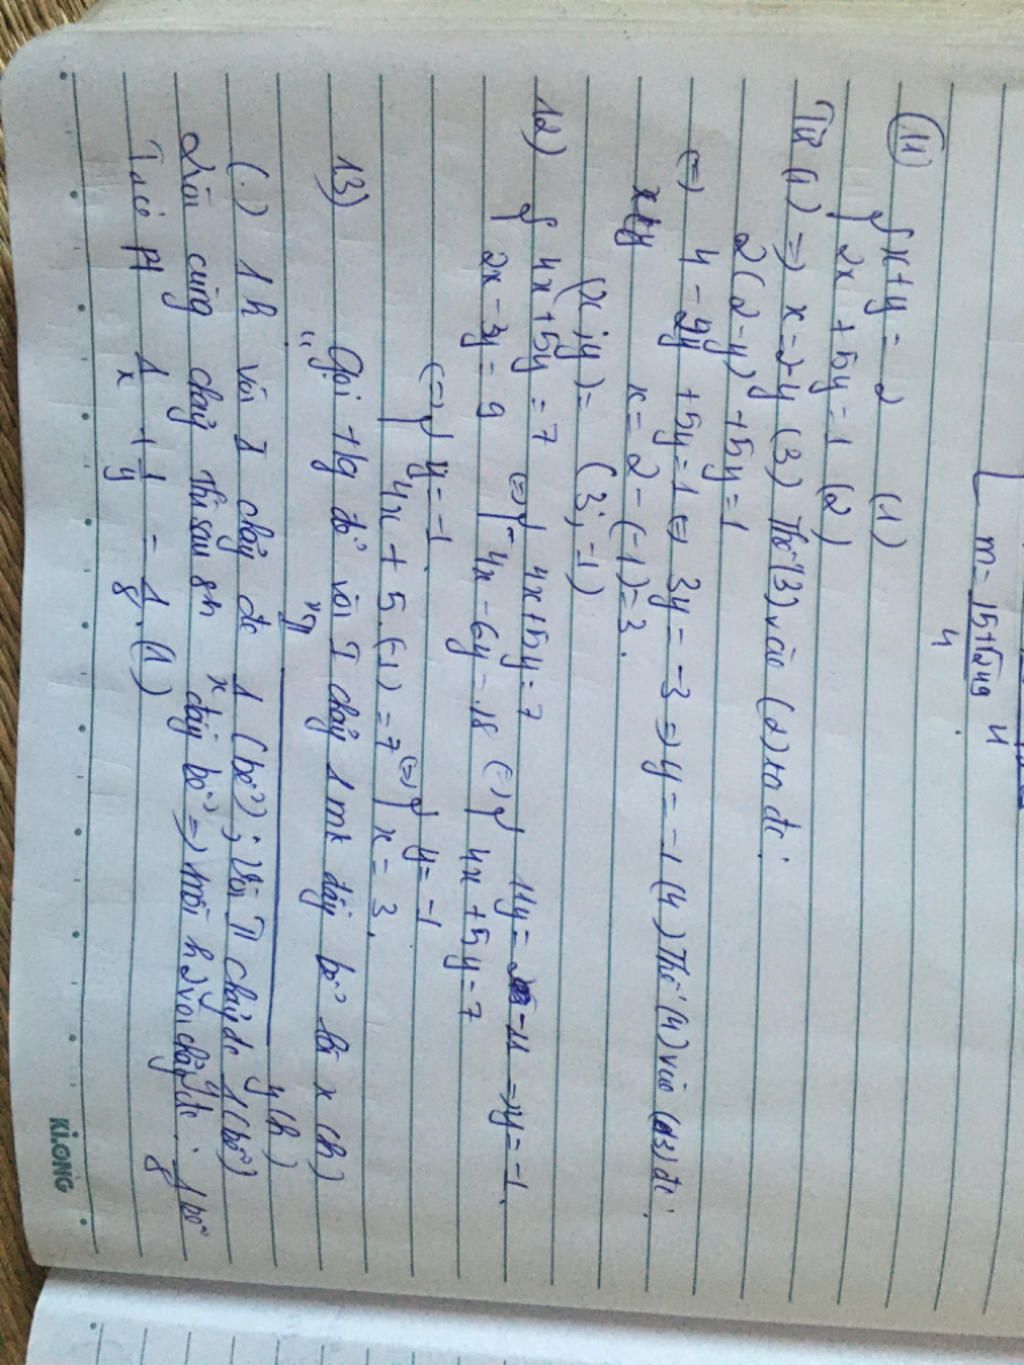 m = 15+√249
4
4
11) { x + y = 2 (1)
2x + 5y = 1 (2)
Từ (1) => x = 2 - y (3) Thế (3) vào (2) ta đc:
2(2-y) + 5y = 1
<=> 4 - 2y + 5y = 1 <=> 3y = -3 => y = -1 (4) Thế (4) vào (3) đc:
x = 2 - (-1) = 3.
(x ; y) = (3 ; -1)
12) { 4x + 5y = 7 <=> { 4x + 5y = 7 <=> { 11y = -11 => y = -1.
2x - 3y = 9 4x - 6y = 18 4x + 5y = 7
<=> { y = -1 <=> { y = -1
4x + 5.(-1) = 7 x = 3.
13) Gọi tg để vòi I chảy 1 mk đầy bể là x (h)
" II " y (h)
(.) 1 h vòi I chảy đc 1/x (bể) ; Vòi II chảy đc 1/y (bể)
2 vòi cùng chảy thì sau 8h đầy bể => mỗi h 2 vòi chảy đc: 1/8 bể
Ta có pt 1/x + 1/y = 1/8. (1)
KLONG